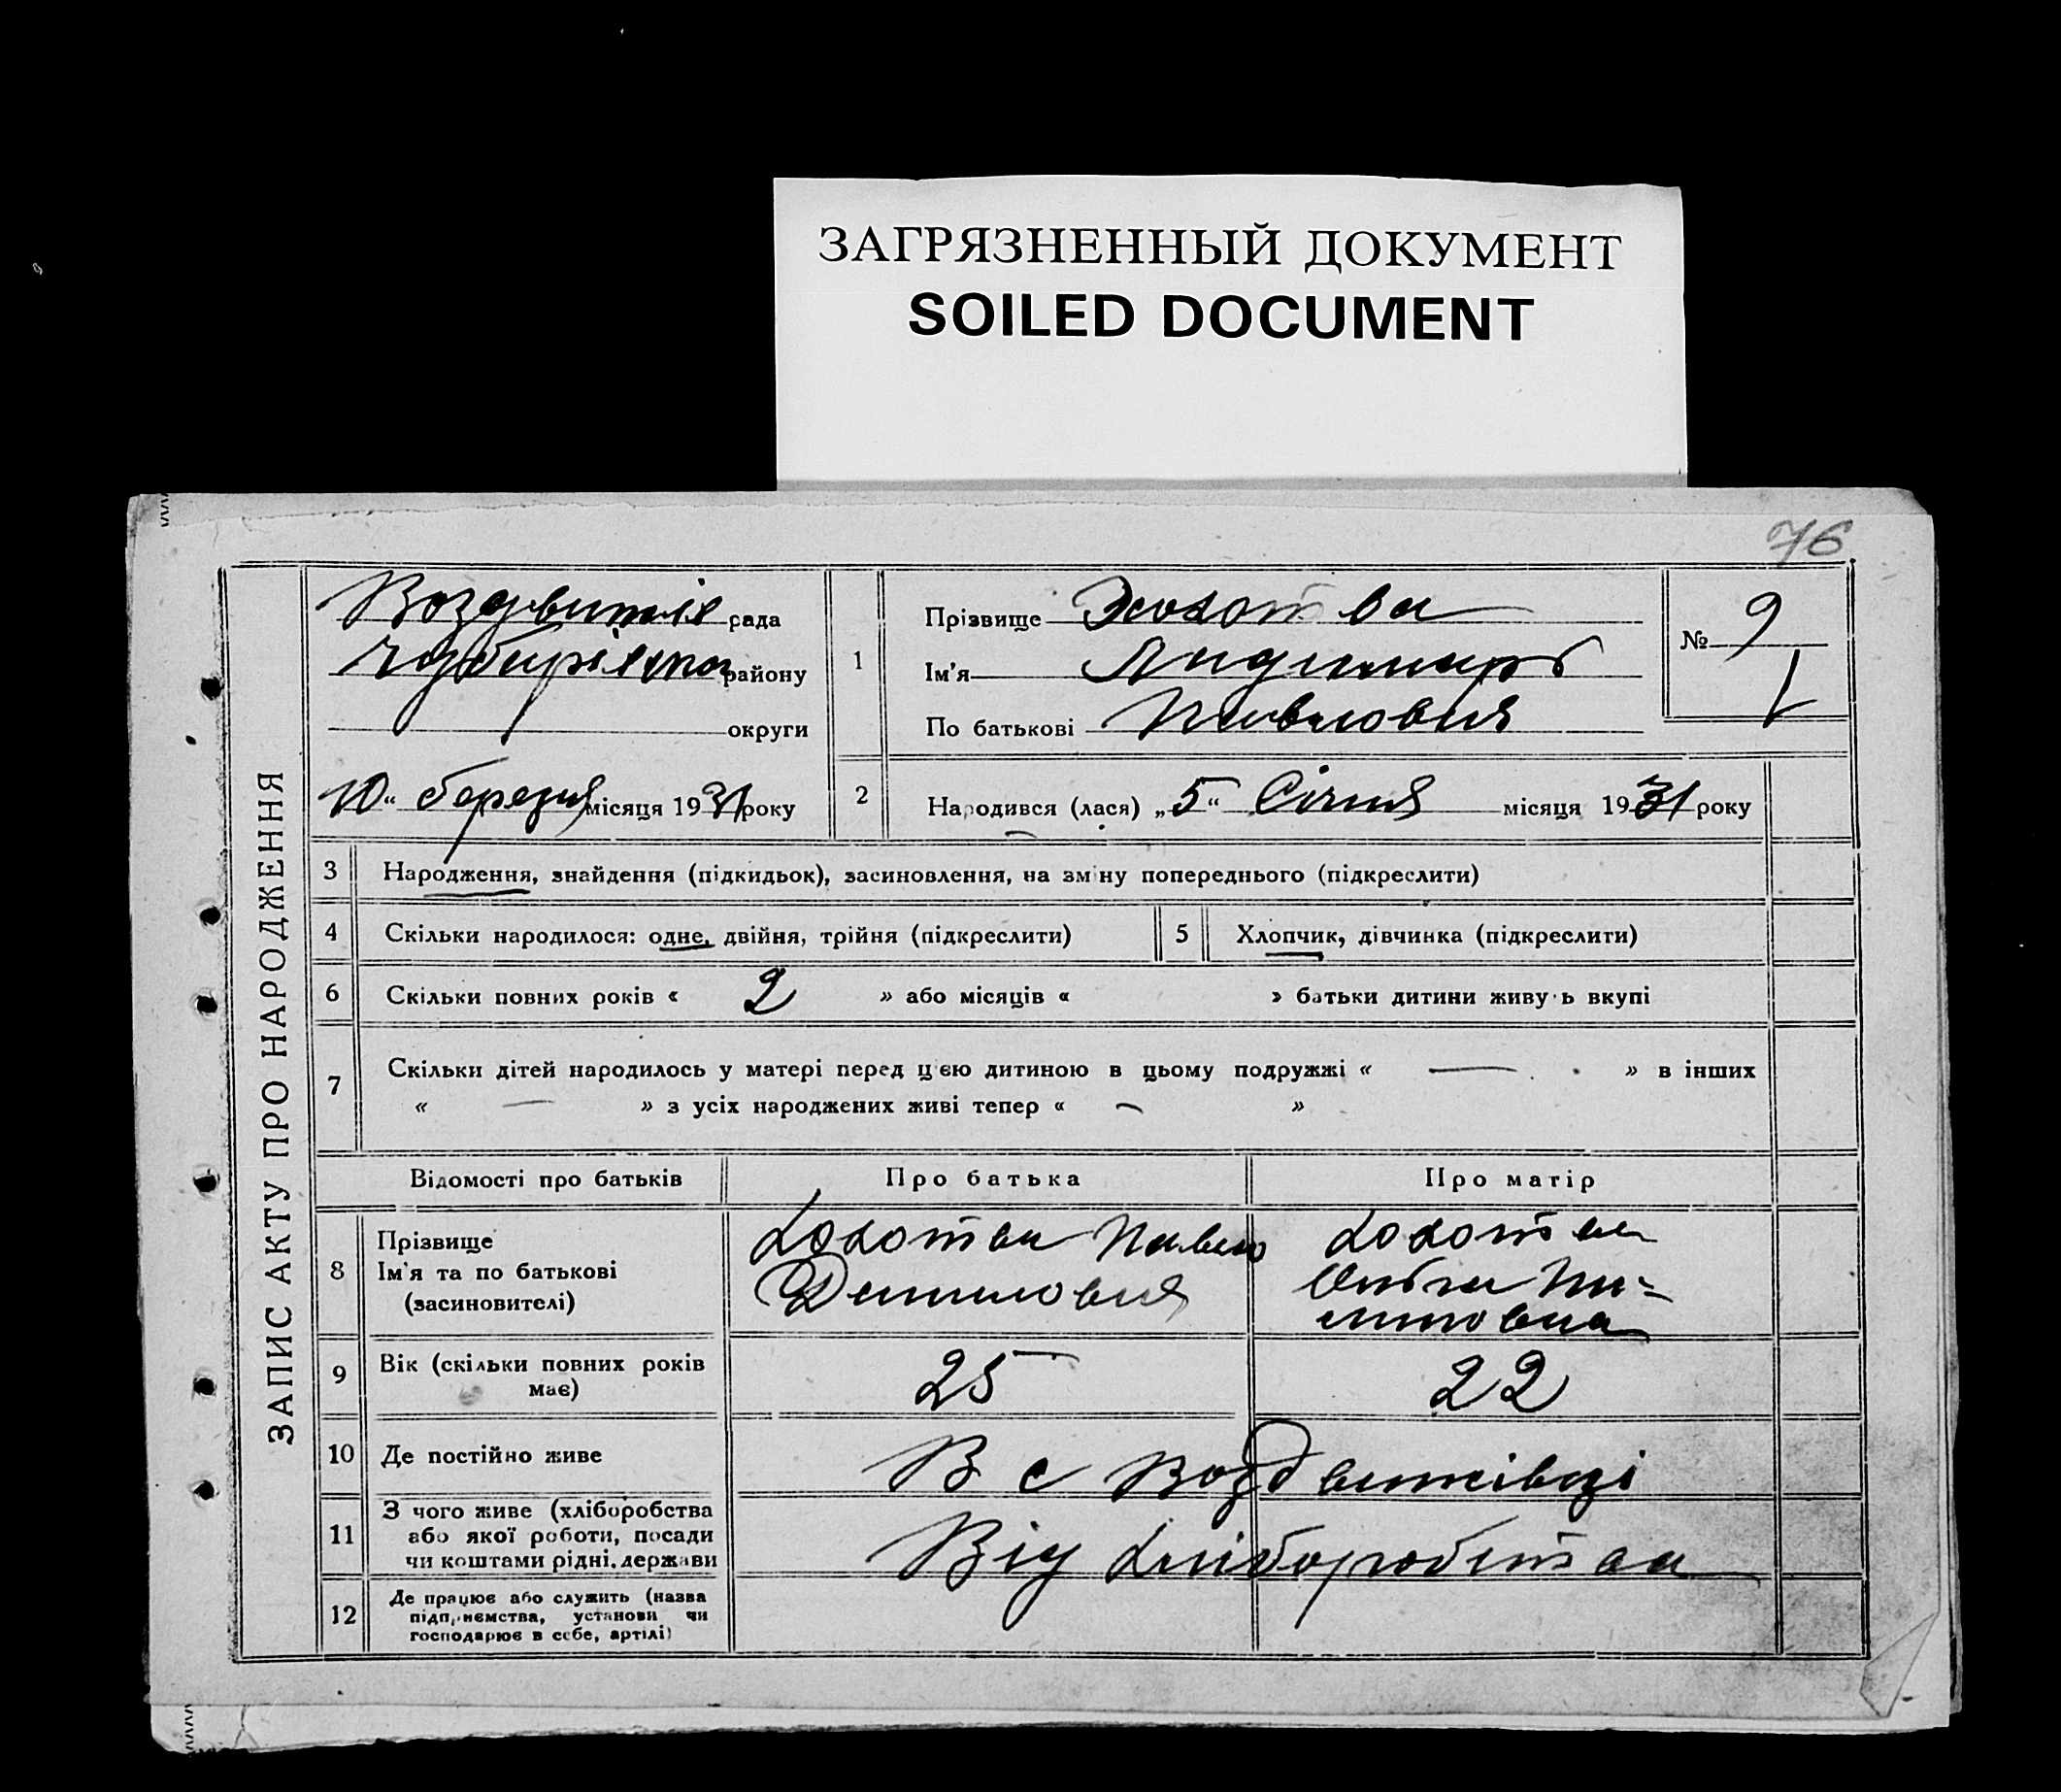 ЗАГРЯЗНЕННЫЙ ДОКУМЕНТ
SOILED DOCUMENT
76
ЗАПИС АКТУ ПРО НАРОДЖЕННЯ
рада
району
округи
10 “ березня місяця 1931 року
1
Прізвище
Ім'я
По батькові Павлович
№ 9
2
Народився (лася) „5“ Січня місяця 1931 року
3 Народження, знайдення (підкидьок), засиновлення, на зміну попереднього (підкреслити)
4 Скільки народилося: одне, двійня, трійня (підкреслити) 5 Хлопчик, дівчинка (підкреслити)
6 Скільки повних років « 2 » або місяців « » батьки дитини живуть вкупі
7 Скільки дітей народилось у матері перед цією дитиною в цьому подружжі « — » в інших
« — » з усіх народжених живі тепер « — »
Відомості про батьків Про батька Про матір
8 Прізвище
Ім'я та по батькові
(засиновителі)
Павло
Данилович
Ольга
9 Вік (скільки повних років
має) 25 22
10 Де постійно живе В с Воздвижівці
11 З чого живе (хліборобства
або якої роботи, посади
чи коштами рідні, держави
Від хліборобства
12 Де працює або служить (назва
підприємства, установи чи
господарює в себе, артілі)